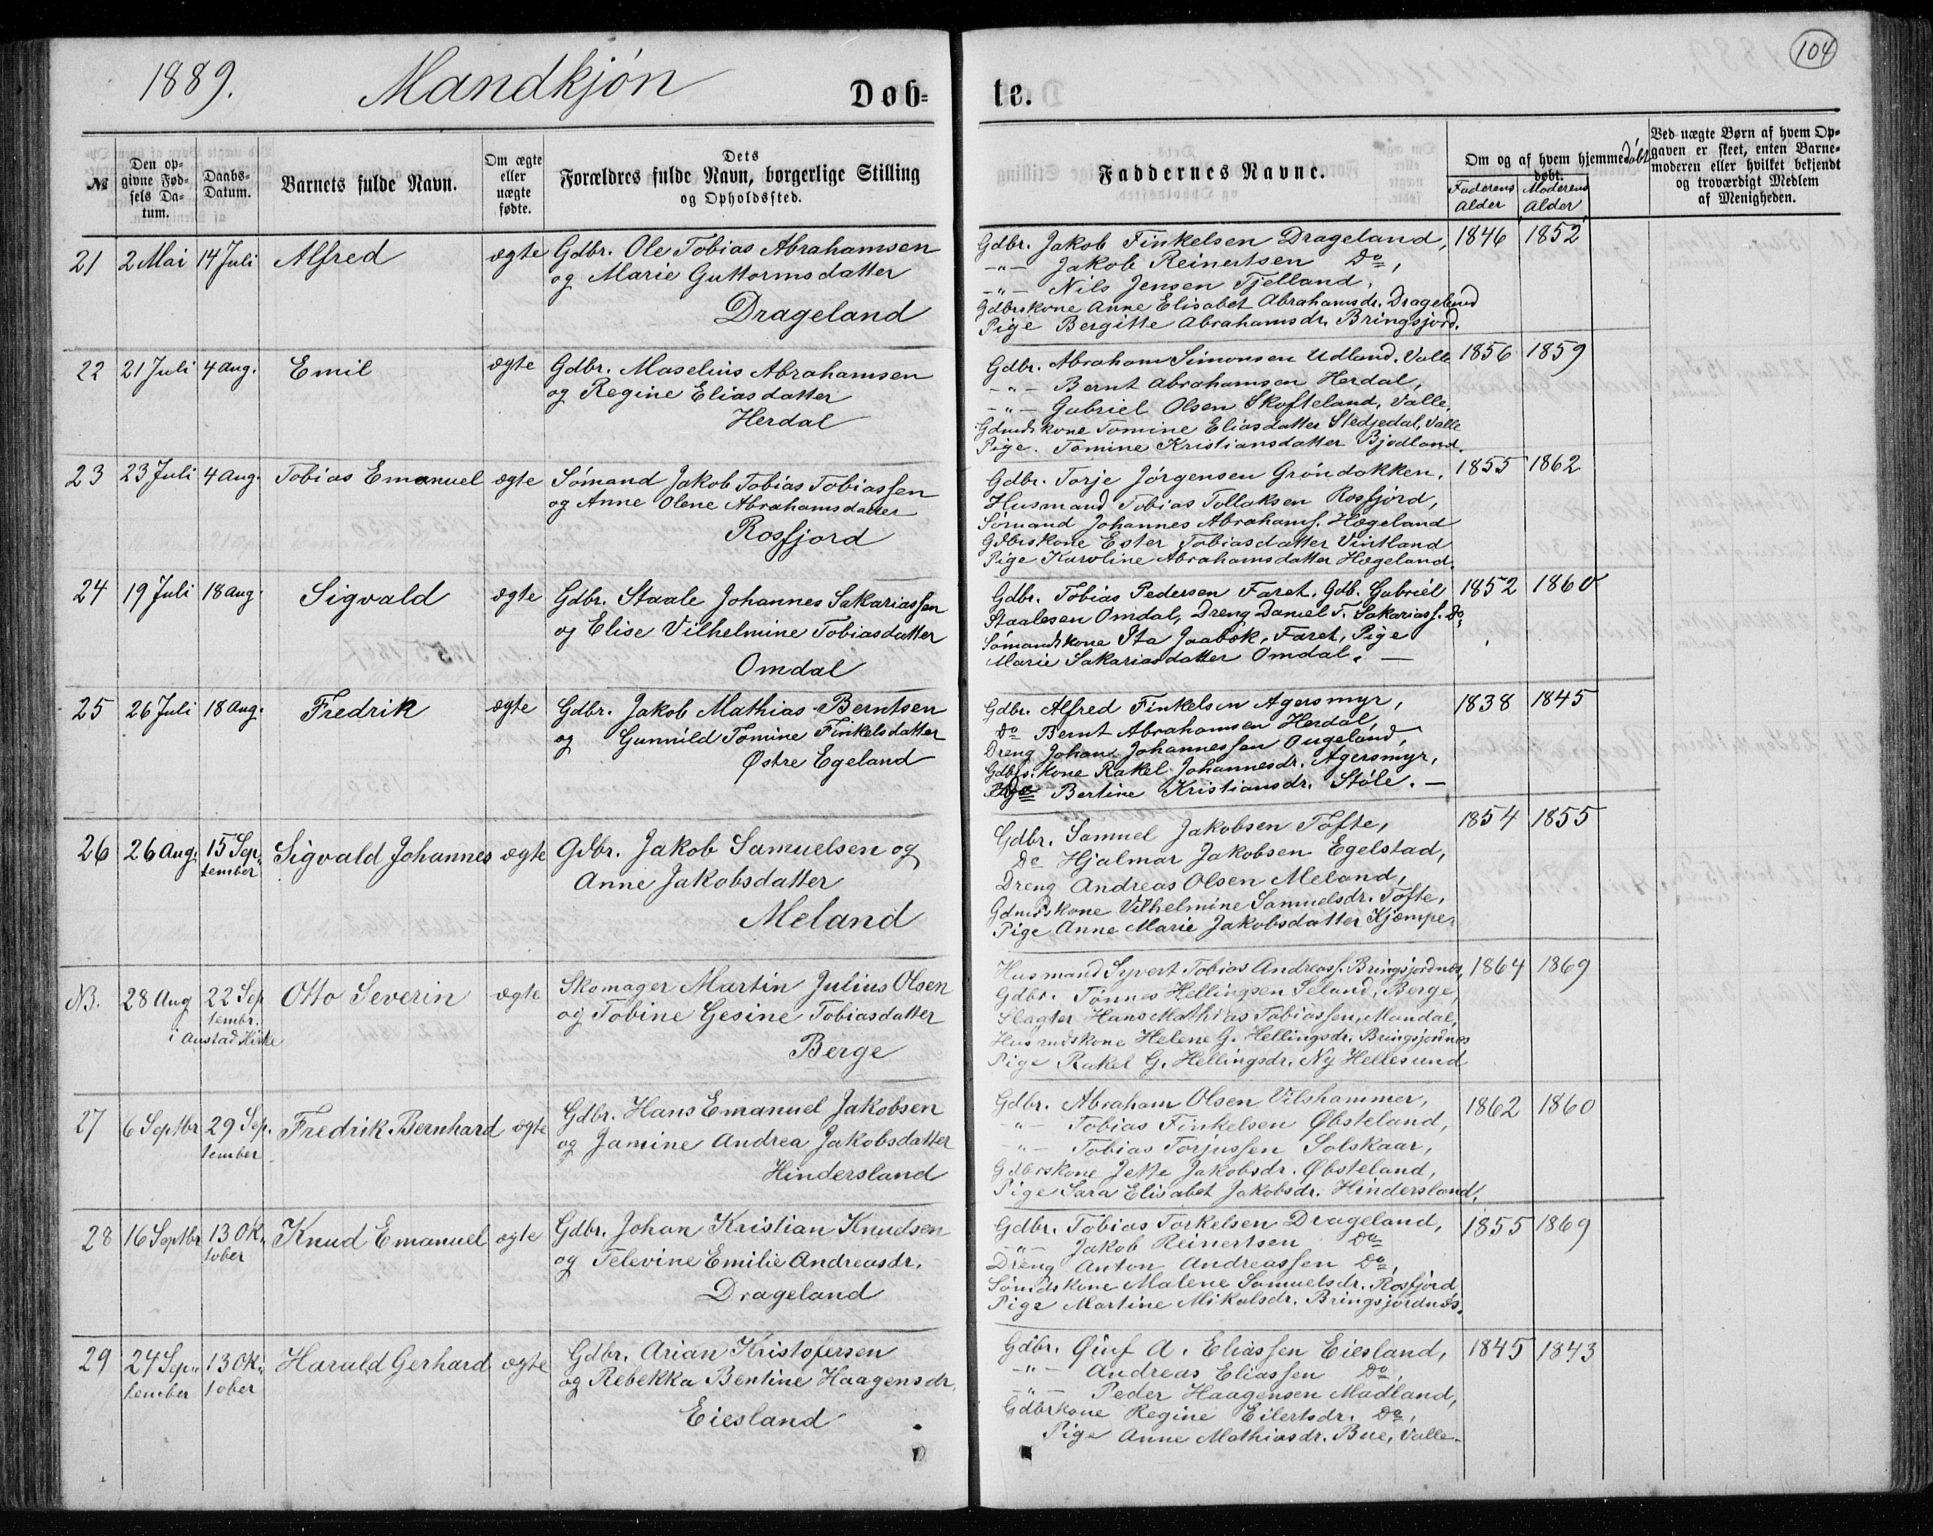 104
1889. Mandkjøn
Døb= te.
№
Den op-
givne Fød-
sels Da-
tum.
Daabs-
Datum.
Barnets fulde Navn.
Om ægte
eller
uægte
fødte.
Dets
Forældres fulde Navn, borgerlige Stilling
og Opholdssted.
Faddernes Navne.
Om og af hvem hjemmedøbt
døbt.
Faderens
Alder
Moderens
Alder
Ved uægte Børn af hvem Op-
gaven er skeet, enten Barne-
moderen eller hvilket bekjendt
og troværdigt Medlem
af Menigheden.
21 2 Mai 14 Juli Alfred ægte
Gdbr. Ole Tobias Abrahamsen
og Marie Guttormsdatter
Drageland
Gdbr. Jakob Finkelsen Drageland, 1846 1852
-"- Jakob Reinertsen Do,
-"- Nils Jensen Tjelland,
Gdbrskone Anne Elisabet Abrahamsdr. Drageland
Pige Bergitte Abrahamsdr. Bringsjord.
22 21 Juli 4 Aug. Emil ægte
Gdbr. Maselius Abrahamsen
og Regine Eliasdatter
Herdal
Gdbr. Abraham Simonsen Udland, Valle 1856 1859
-"- Bernt Abrahamsen Herdal,
-"- Gabriel Olsen Skofteland, Valle,
Gdmdskone Tomine Eliasdatter Stedjedal, Valle
Pige. Tomine Kristiansdatter Bjodland.
23 23 Juli 4 Aug. Tobias Emanuel ægte
Sømand Jakob Tobias Tobiassen
og Anne Olene Abrahamsdatter
Rosfjord
Gdbr. Torje Jörgensen Gröndokken. 1855 1862
Husmand Tobias Tollaksen Rosfjörd,
Sømand Johannes Abrahams. Hægeland
Gdbrskone Ester Tobiasdatter Vintland
Pige Karoline Abrahamsdatter Hægeland.
24 19 Juli 18 Aug. Sigvald ægte
Gdbr. Staale Johannes Sakariassen
og Elise Vilhelmine Tobiasdatter
Omdal
Gdbr. Tobias Pedersen Faret. Gdb. Gabriel 1852 1860
Staalesen Omdal, Dreng Daniel T. Sakarias. Do
Sømandskone Sta Jaabæk, Faret, Pige
Marie Sakariasdatter Omdal. —
25 26 Juli 18 Aug. Fredrik ægte
Gdbr. Jakob Mathias Berntsen
og Gunnild Tomine Finkelsdatter
Østre Egeland
Gdbr. Alfred Finkelsen Agersmyr, 1838 1845
Do Bernt Abrahamsen Herdal,
Dreng Johan Johannessen Ougeland,
Gdbrs.kone Rakel Johannesdr. Agersmyr,
Do Bertine Kristiansdr. Støle. —
26 26 Aug. 15 Sep-
tember Sigvald Johannes ægte
Gdbr. Jakob Samuelsen og
Anne Jakobsdatter
Meland
Gdbr. Samuel Jakobsen Tofte, 1854 1855
Do Hjalmar Jakobsen Egelstad,
Dreng Andreas Olsen Meland,
Gdmdskone Vilhelmine Samuelsdr. Tofte,
Pige Anne Marie Jakobsdatter Kjæmpe.
NB. 28 Aug 22 Sep
tembr.
i Austad Kirke
Otto Severin ægte
Skomager Martin Julius Olsen
og Tobine Gesine Tobiasdatter
Berge
Husmand Syvert Tobias Andreass. Bringsjordnes, 1864 1869
Gdbr. Tönnes Hellingsen Seland, Berge,
Slagter Hans Mathias Tobiassen, Mandal,
Husmdskone Helene G. Hellingsdr. Bringsjordnes
Pige Rakel G. Hellingsdr. Ny Hellesund
27 6 Septbr 29 Sep.
tember Fredrik Bernhard ægte
Gdbr. Hans Emanuel Jakobsen
og Jamine Andrea Jakobsdatter
Hindersland
Gdbr. Abraham Olsen Vilshammer, 1862 1860
-"- Tobias Finkelsen Øbsteland,
"- Tobias Torjussen Solskaar,
Gdbrskone Jette Jakobsdr. Øbsteland,
Pige Sara Elisabet Jakobsdr. Hindersland,
28 16 Septbr 13 Ok-
tober Knud Emanuel ægte
Gdbr. Johan Kristian Knudsen
og Televine Emilie Andreasdr.
Drageland
Gdbr. Tobias Torkelsen Drageland, 1855 1869
-"- Jakob Reinertsen Do
Dreng Anton Andreassen Do,
Sømdskone Malene Samuelsdr. Rosfjord
Pige Martine Mikalsdr. Bringsjordnes.
29 24 Sep-
tember 13 Ok-
tober Harald Gerhard ægte
Gdbr. Arian Kristofersen
og Rebekka Bentine Haagensdr.
Eiesland
Gdbr. A. Eliassen Eiesland, 1845 1843
-"- Andreas Eliassen Do,
-"- Peder Haagensen Madland,
Gdbrkone Regine Eilertsdr. Do,
Pige Anne Mathiasdr. Bue, Valle.